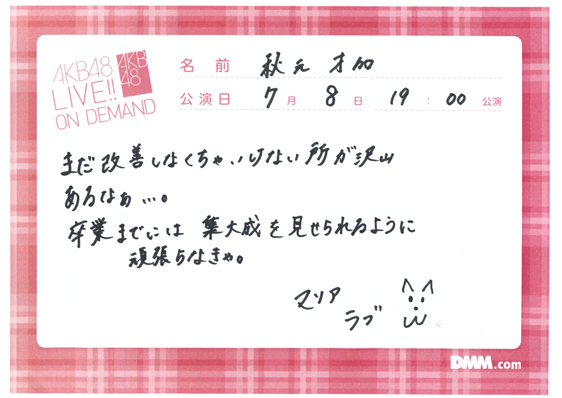 AKB48
LIVE!!
ON DEMAND
AKB
48
名前 秋元才加
公演日 7月8日 19:00 公演
まだ改善しなくちゃいけない所が沢山
あるなぁ…。
卒業までには 集大成を見せられるように
頑張らなきゃ。
マリア
ラブ
DMM.com